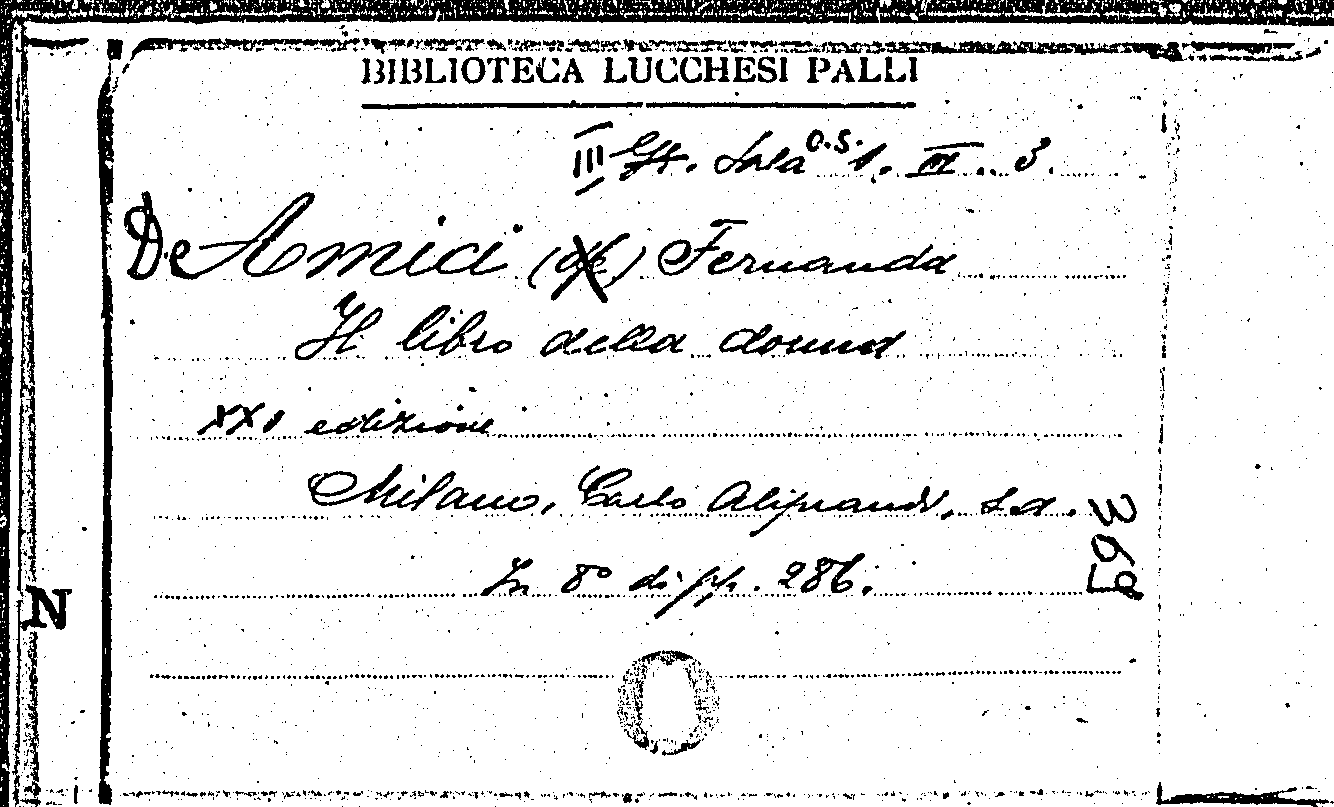 BIBLIOTECA LUCCHESI PALLI
III Sala O.S. 1. III. 3.
De Amici (de) Fernanda
Il libro della donna
XXI edizione
Milano, Carlo Aliprandi, s.a.
In 8° di pp. 286.
369
N